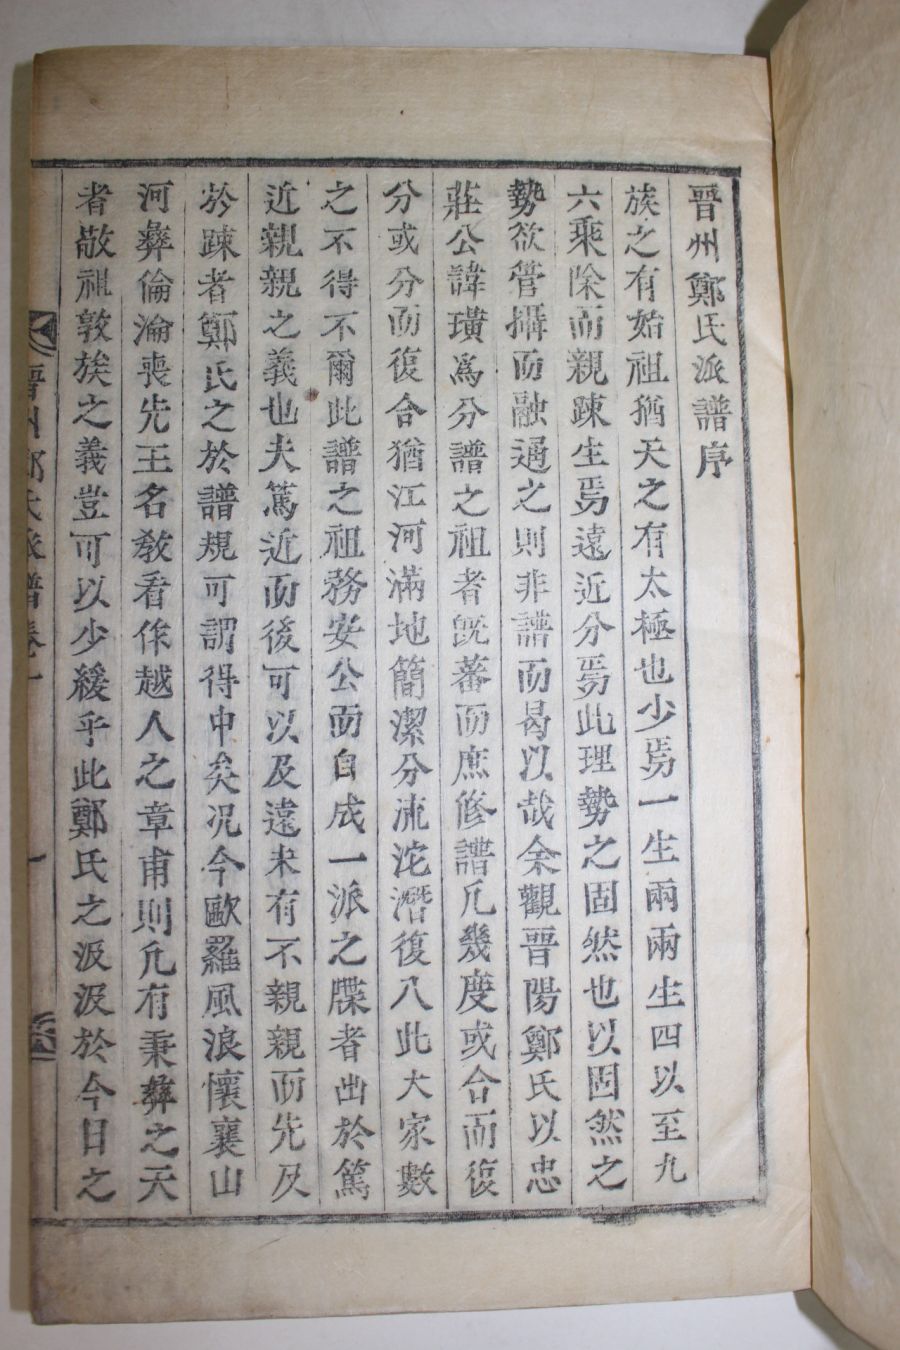 晋州鄭氏派譜序
族之有始祖猶天之有太極也少焉一生兩兩生四以至九
六乘除而親踈生焉遠近分焉此理勢之固然也以固然之
勢欲管攝而融通之則非譜而曷以哉余觀晋陽鄭氏以忠
莊公諱璜爲分譜之祖者旣蕃而庶修譜凡幾度或合而復
分或分而復合猶江河滿地簡潔分流沱潛復入此大家數
之不得不爾此譜之祖務安公而自成一派之牒者出於篤
近親親之義也夫篤近而後可以及遠未有不親親而先及
於踈者鄭氏之於譜規可謂得中矣况今歐羅風浪懷襄山
河彜倫淪喪先王名敎看作越人之章甫則凡有秉彜之天
者敬祖敦族之義豈可以少緩乎此鄭氏之汲汲於今日之
晋州鄭氏派譜卷一
一